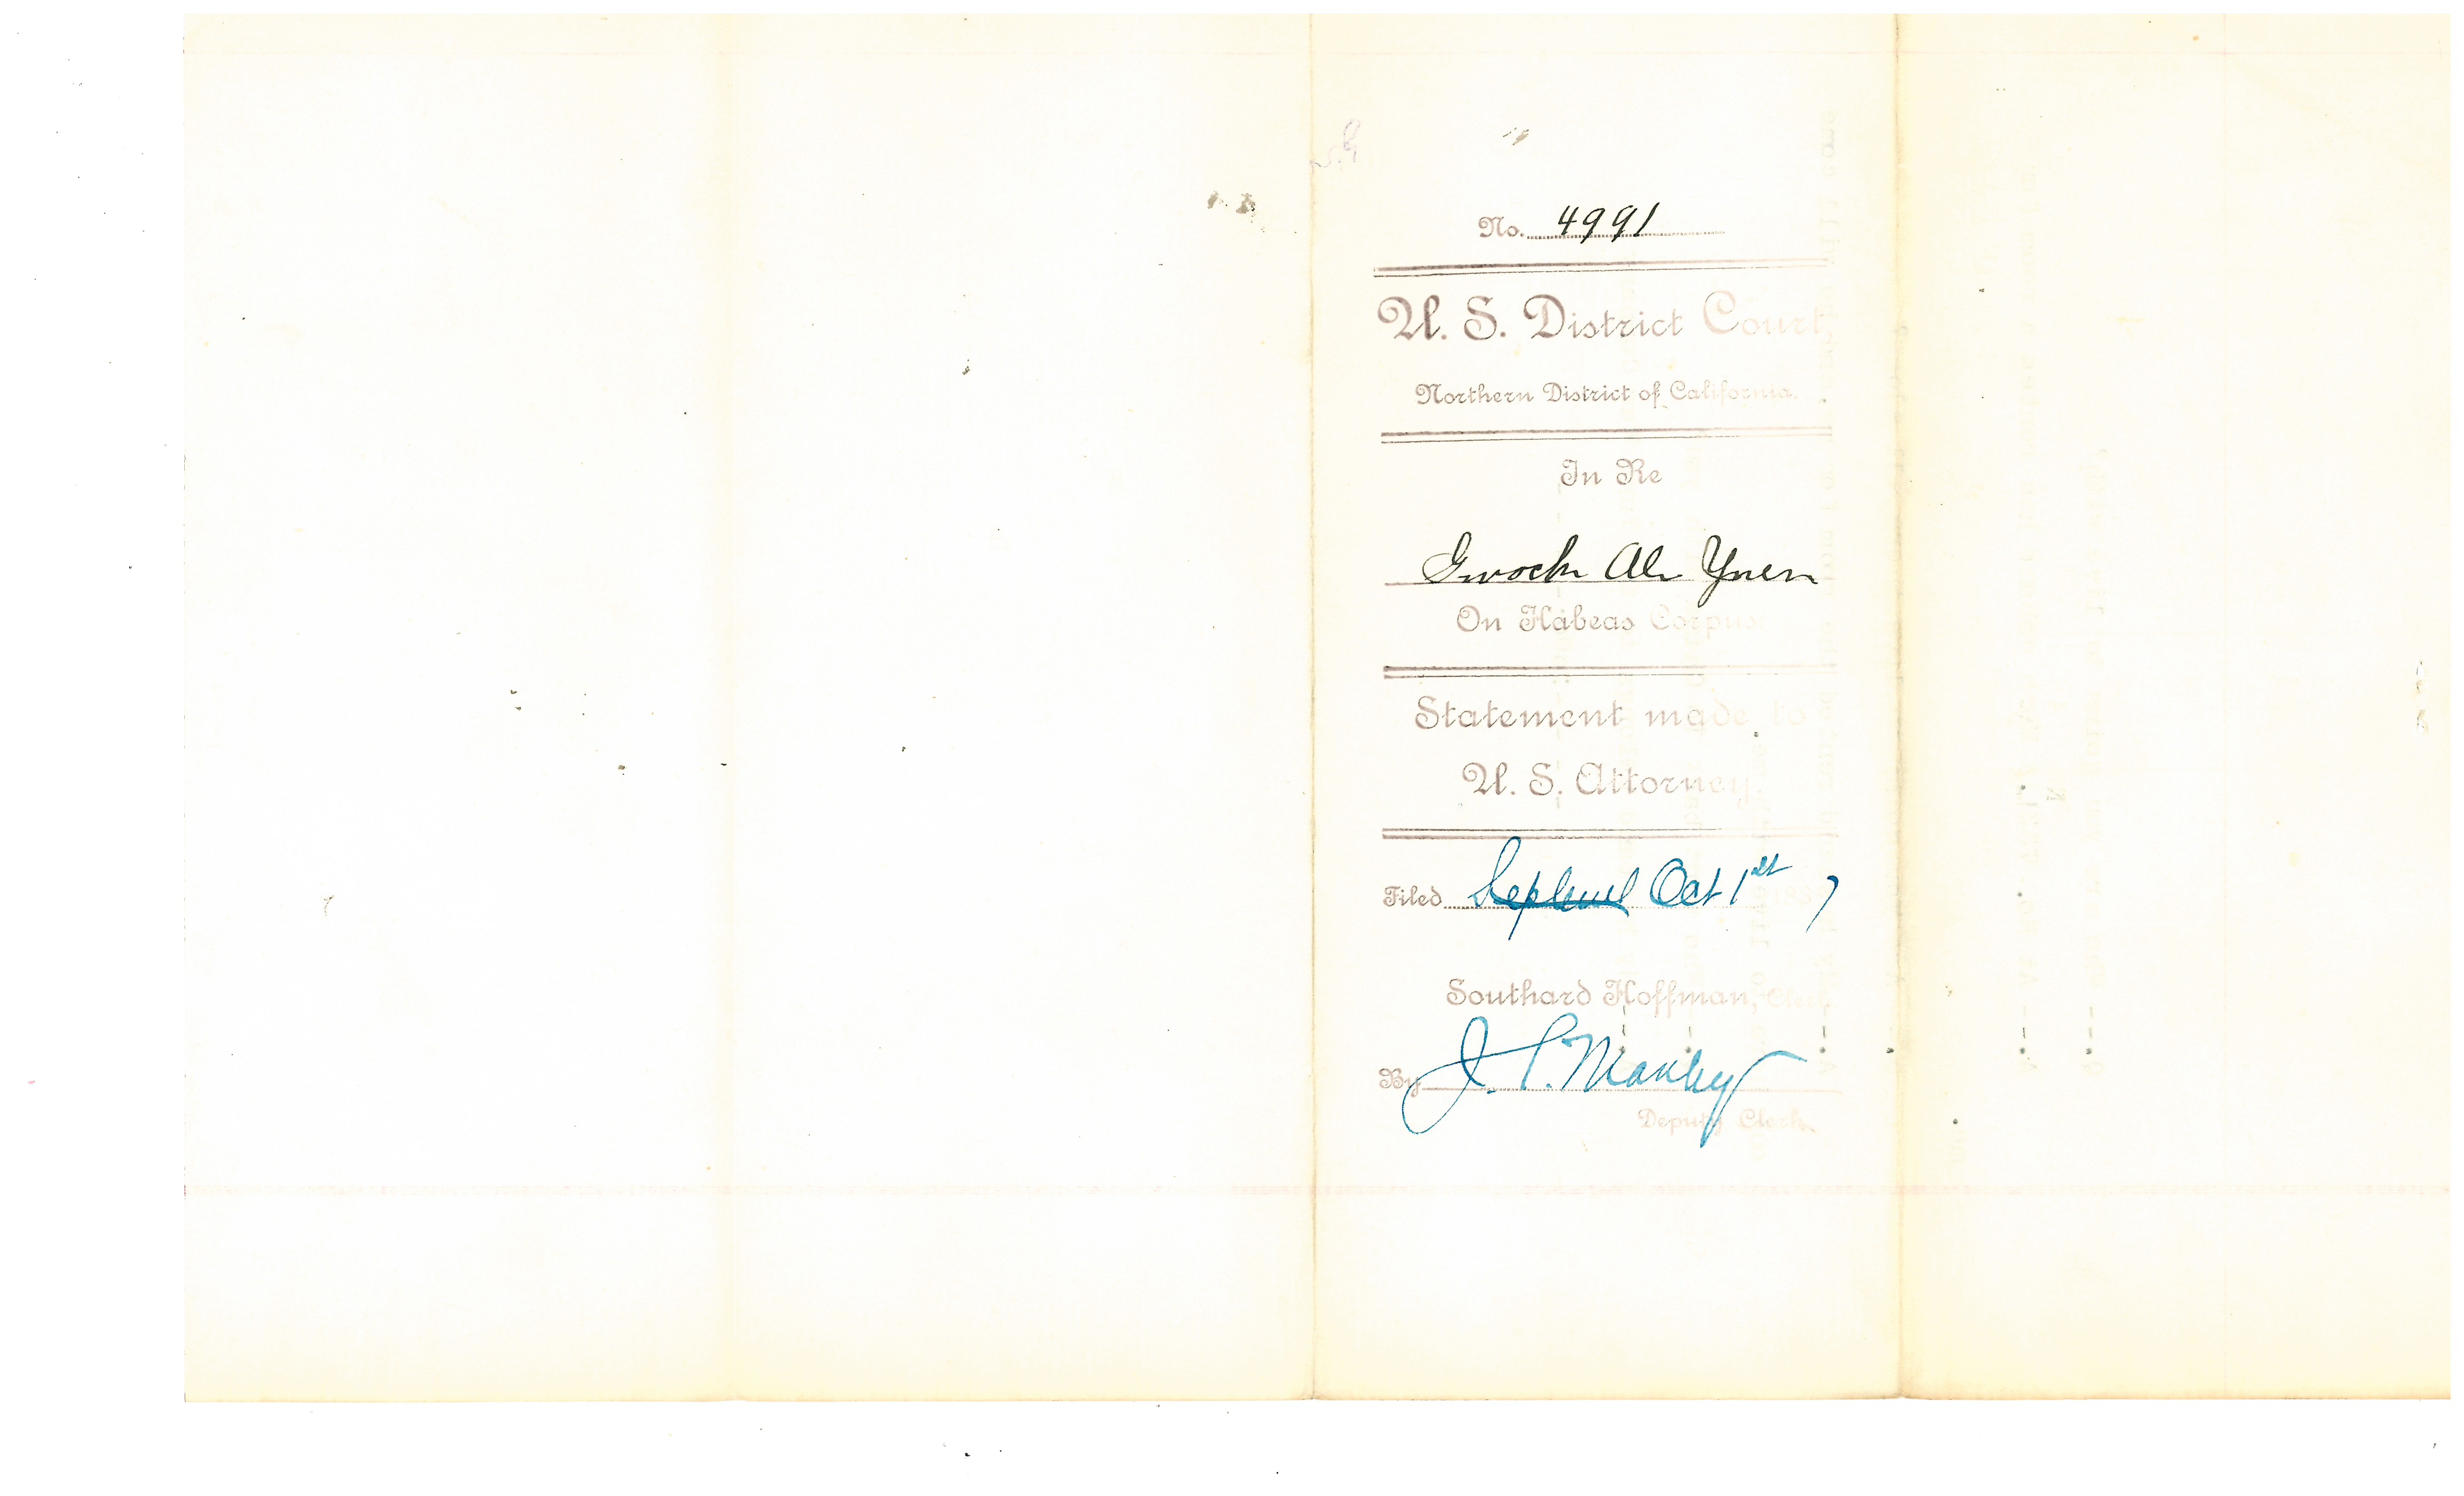 No. 4991
U. S. District Court,
Northern District of California.
In Re
Gwock Ah Yuen
On Habeas Corpus
Statement made to
U. S. Attorney.
Filed Oct 1st 188 7
Southard Hoffman, Clerk.
By J. S. Manley
Deputy Clerk.